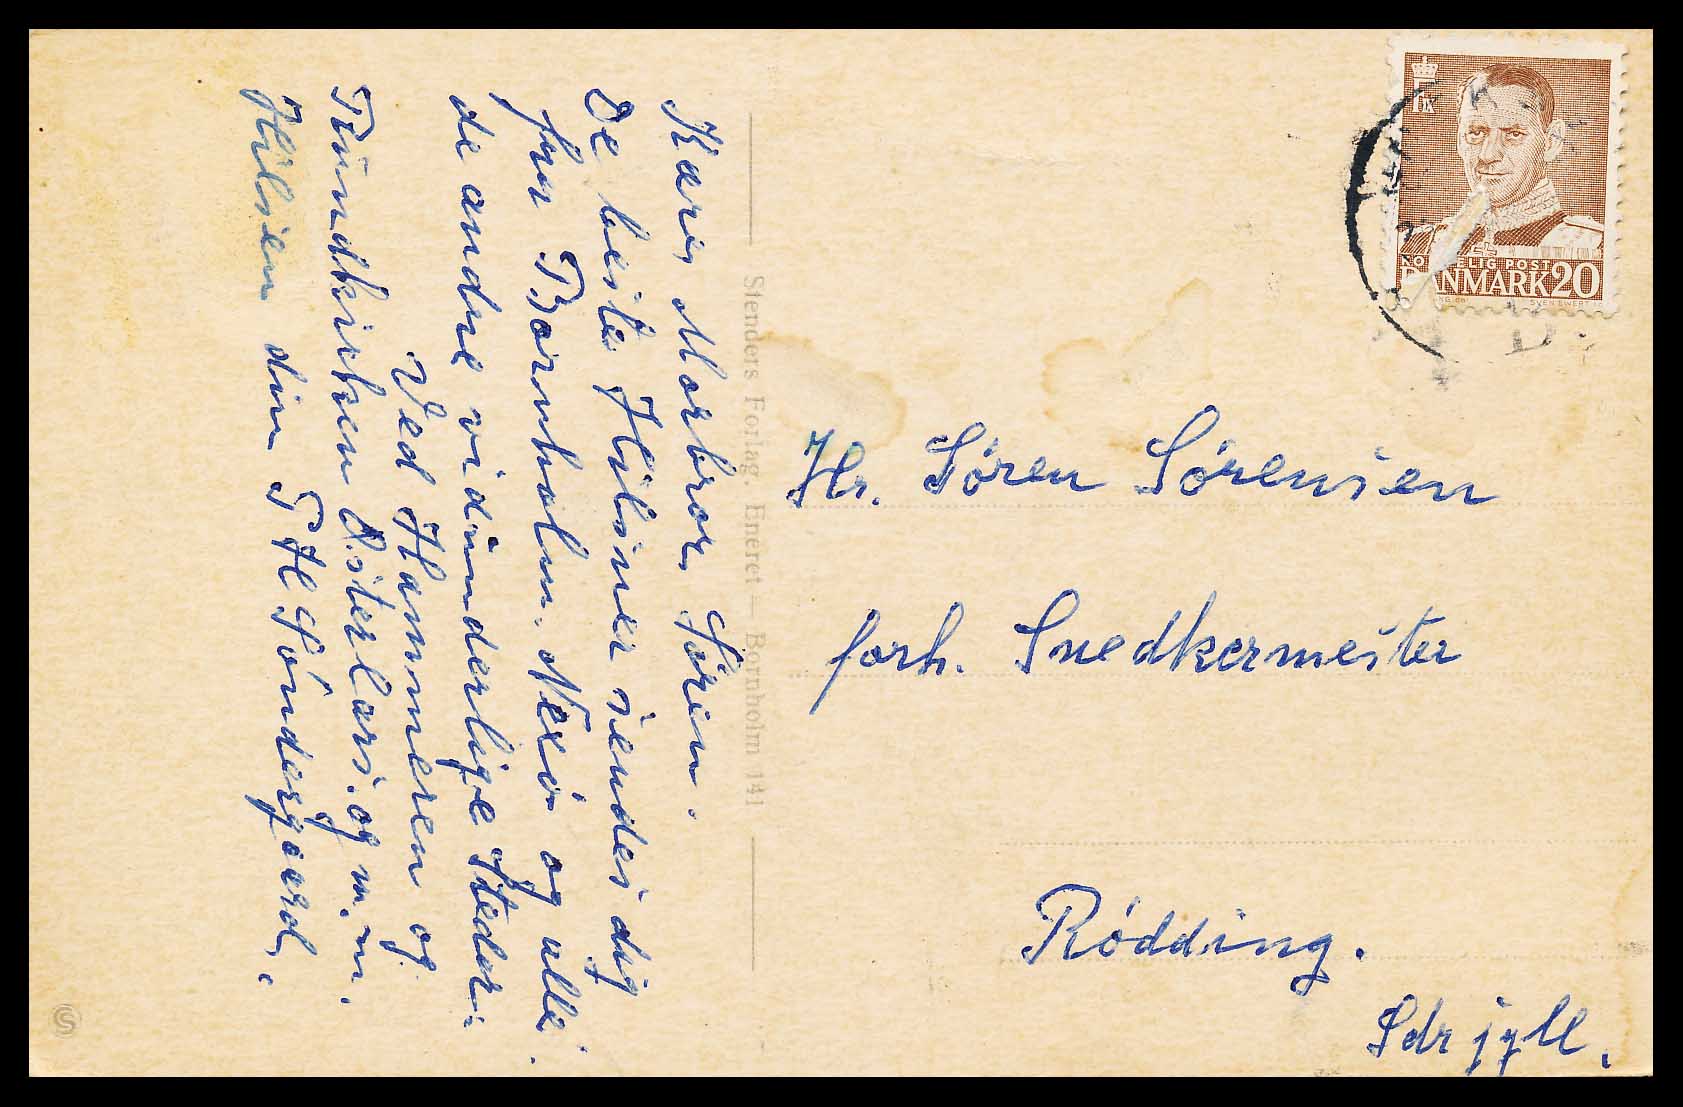 Kære Morbror Sören.
De beste Hilsner sendes dig
fra Bornholm. Nexö og alle
de andre vidunderlige Steder.
Ved Hammeren og
Rundkirken Østerlars. og m.m.
Hilsen din P H Söndergaard.
Stenders Forlag. Eneret — Bornholm 141
DANMARK 20
SVEN EWERT
Hr. Sören Sörensen
forh. Snedkermester
Rödding.
Sdr jyll.
S